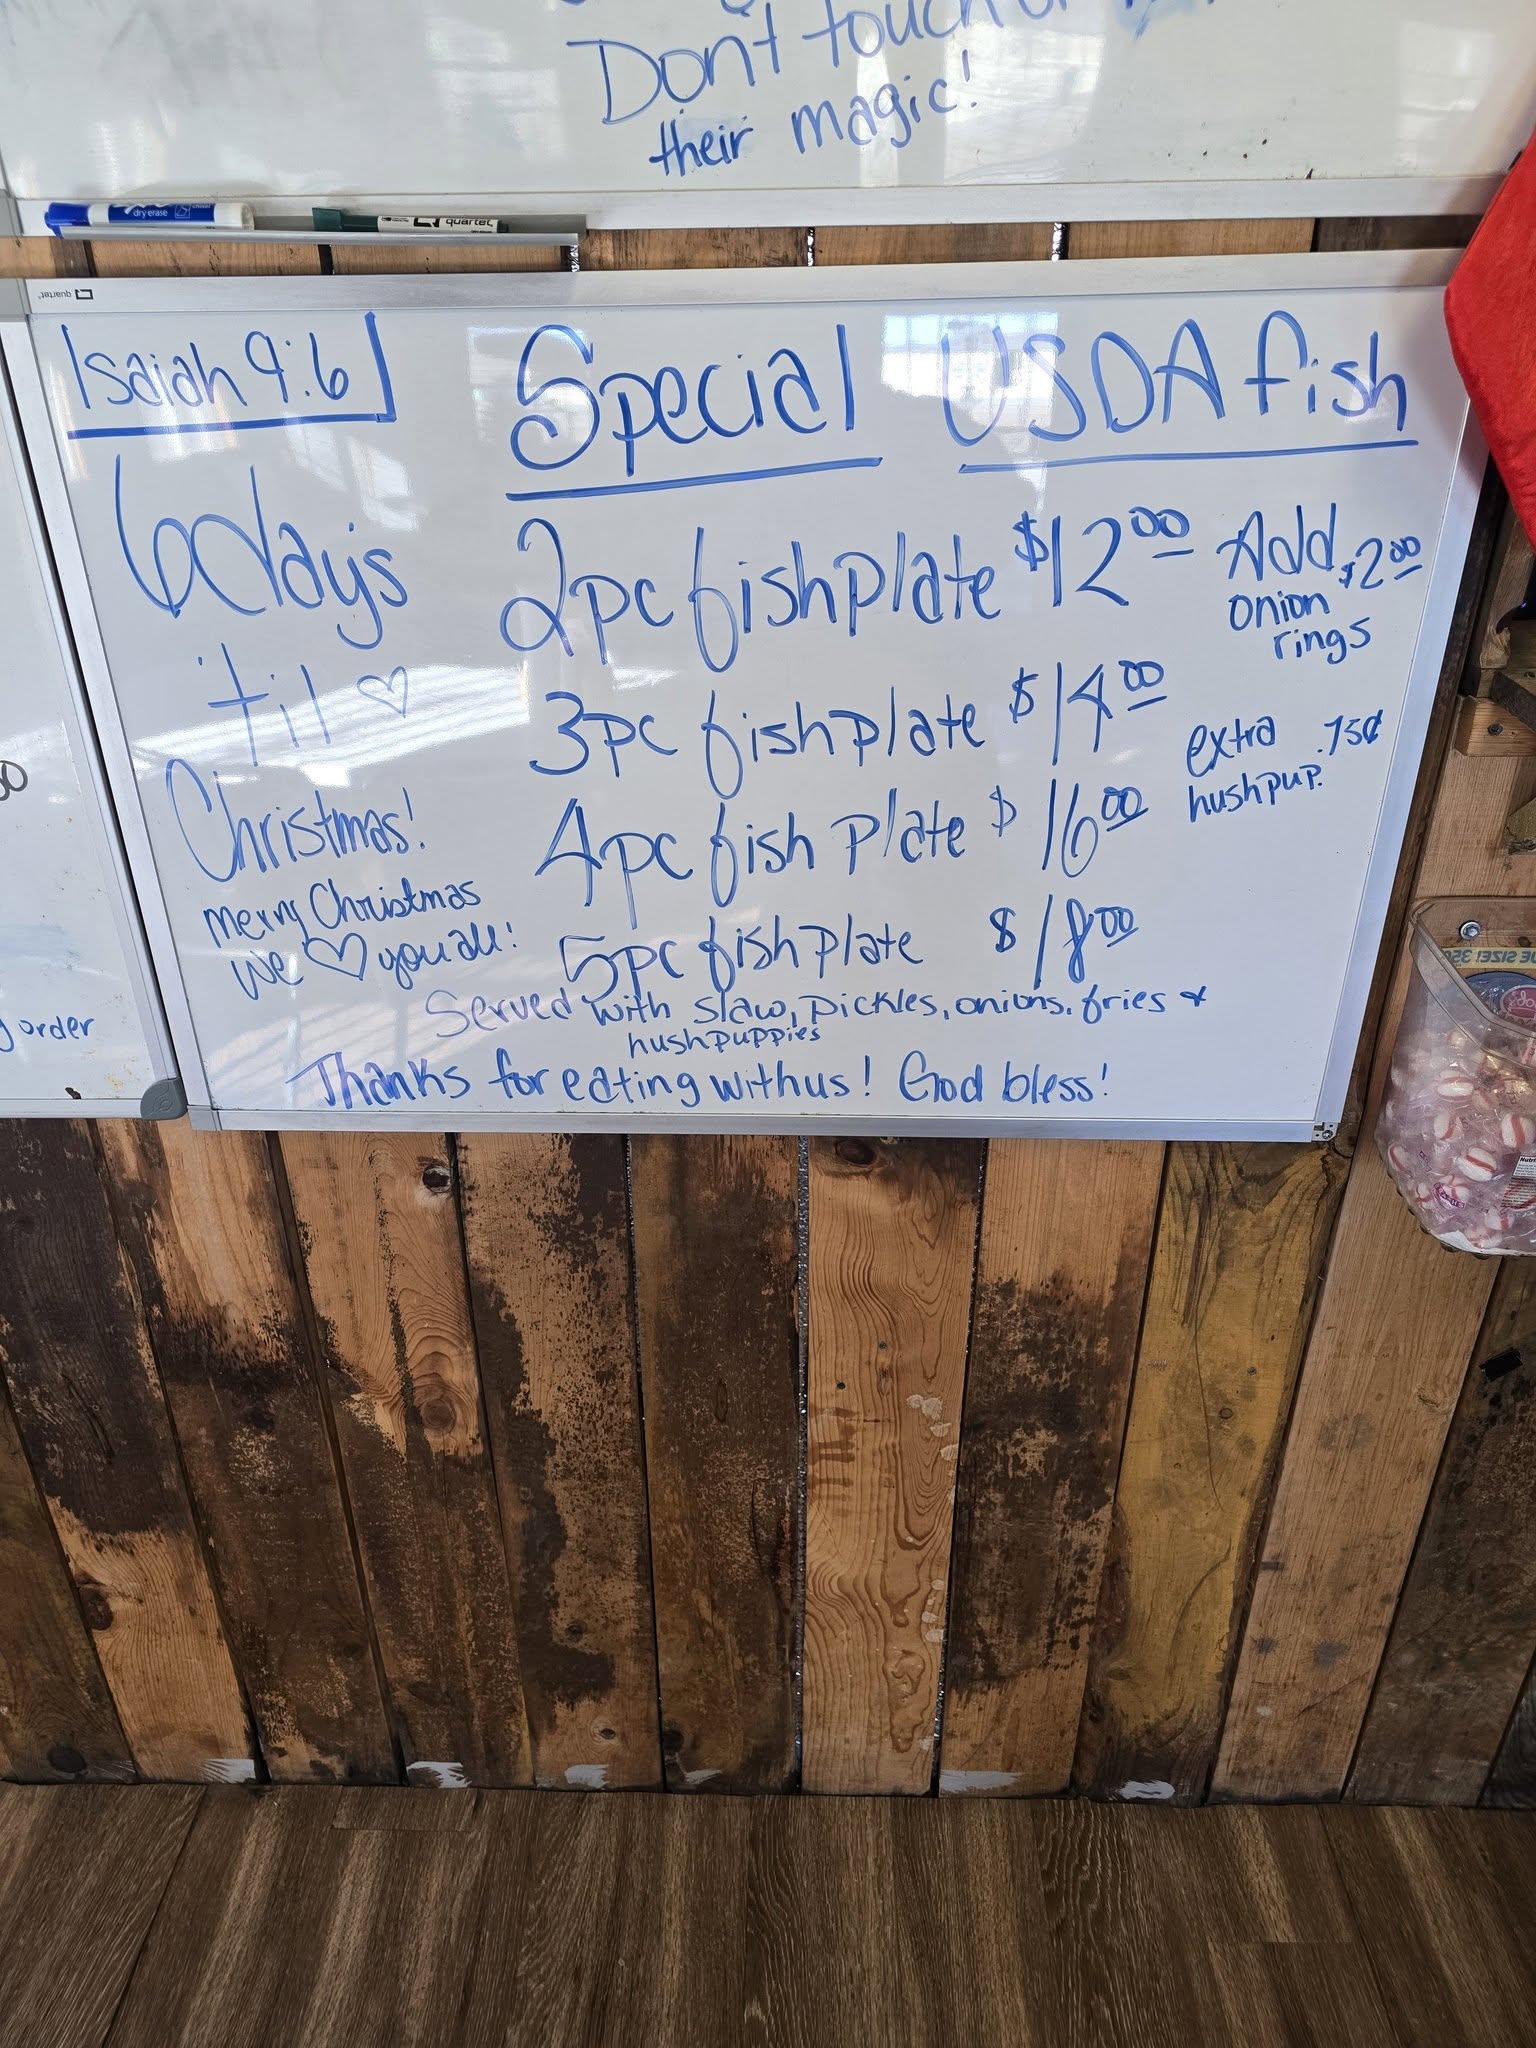 Don't touch
their magic!
dry erase
quartet
quartet
Isaiah 9:6
Special USDA fish
6 days
'til ♡
Christmas!
Merry Christmas
We ♡ you all!
2pc fish plate $12.00
Add $2.00
onion
rings
3pc fish plate $14.00
extra .75¢
hushpup.
4pc fish plate $16.00
5pc fish plate $18.00
Served with slaw, pickles, onions, fries &
hushpuppies
Thanks for eating with us! God bless!
order